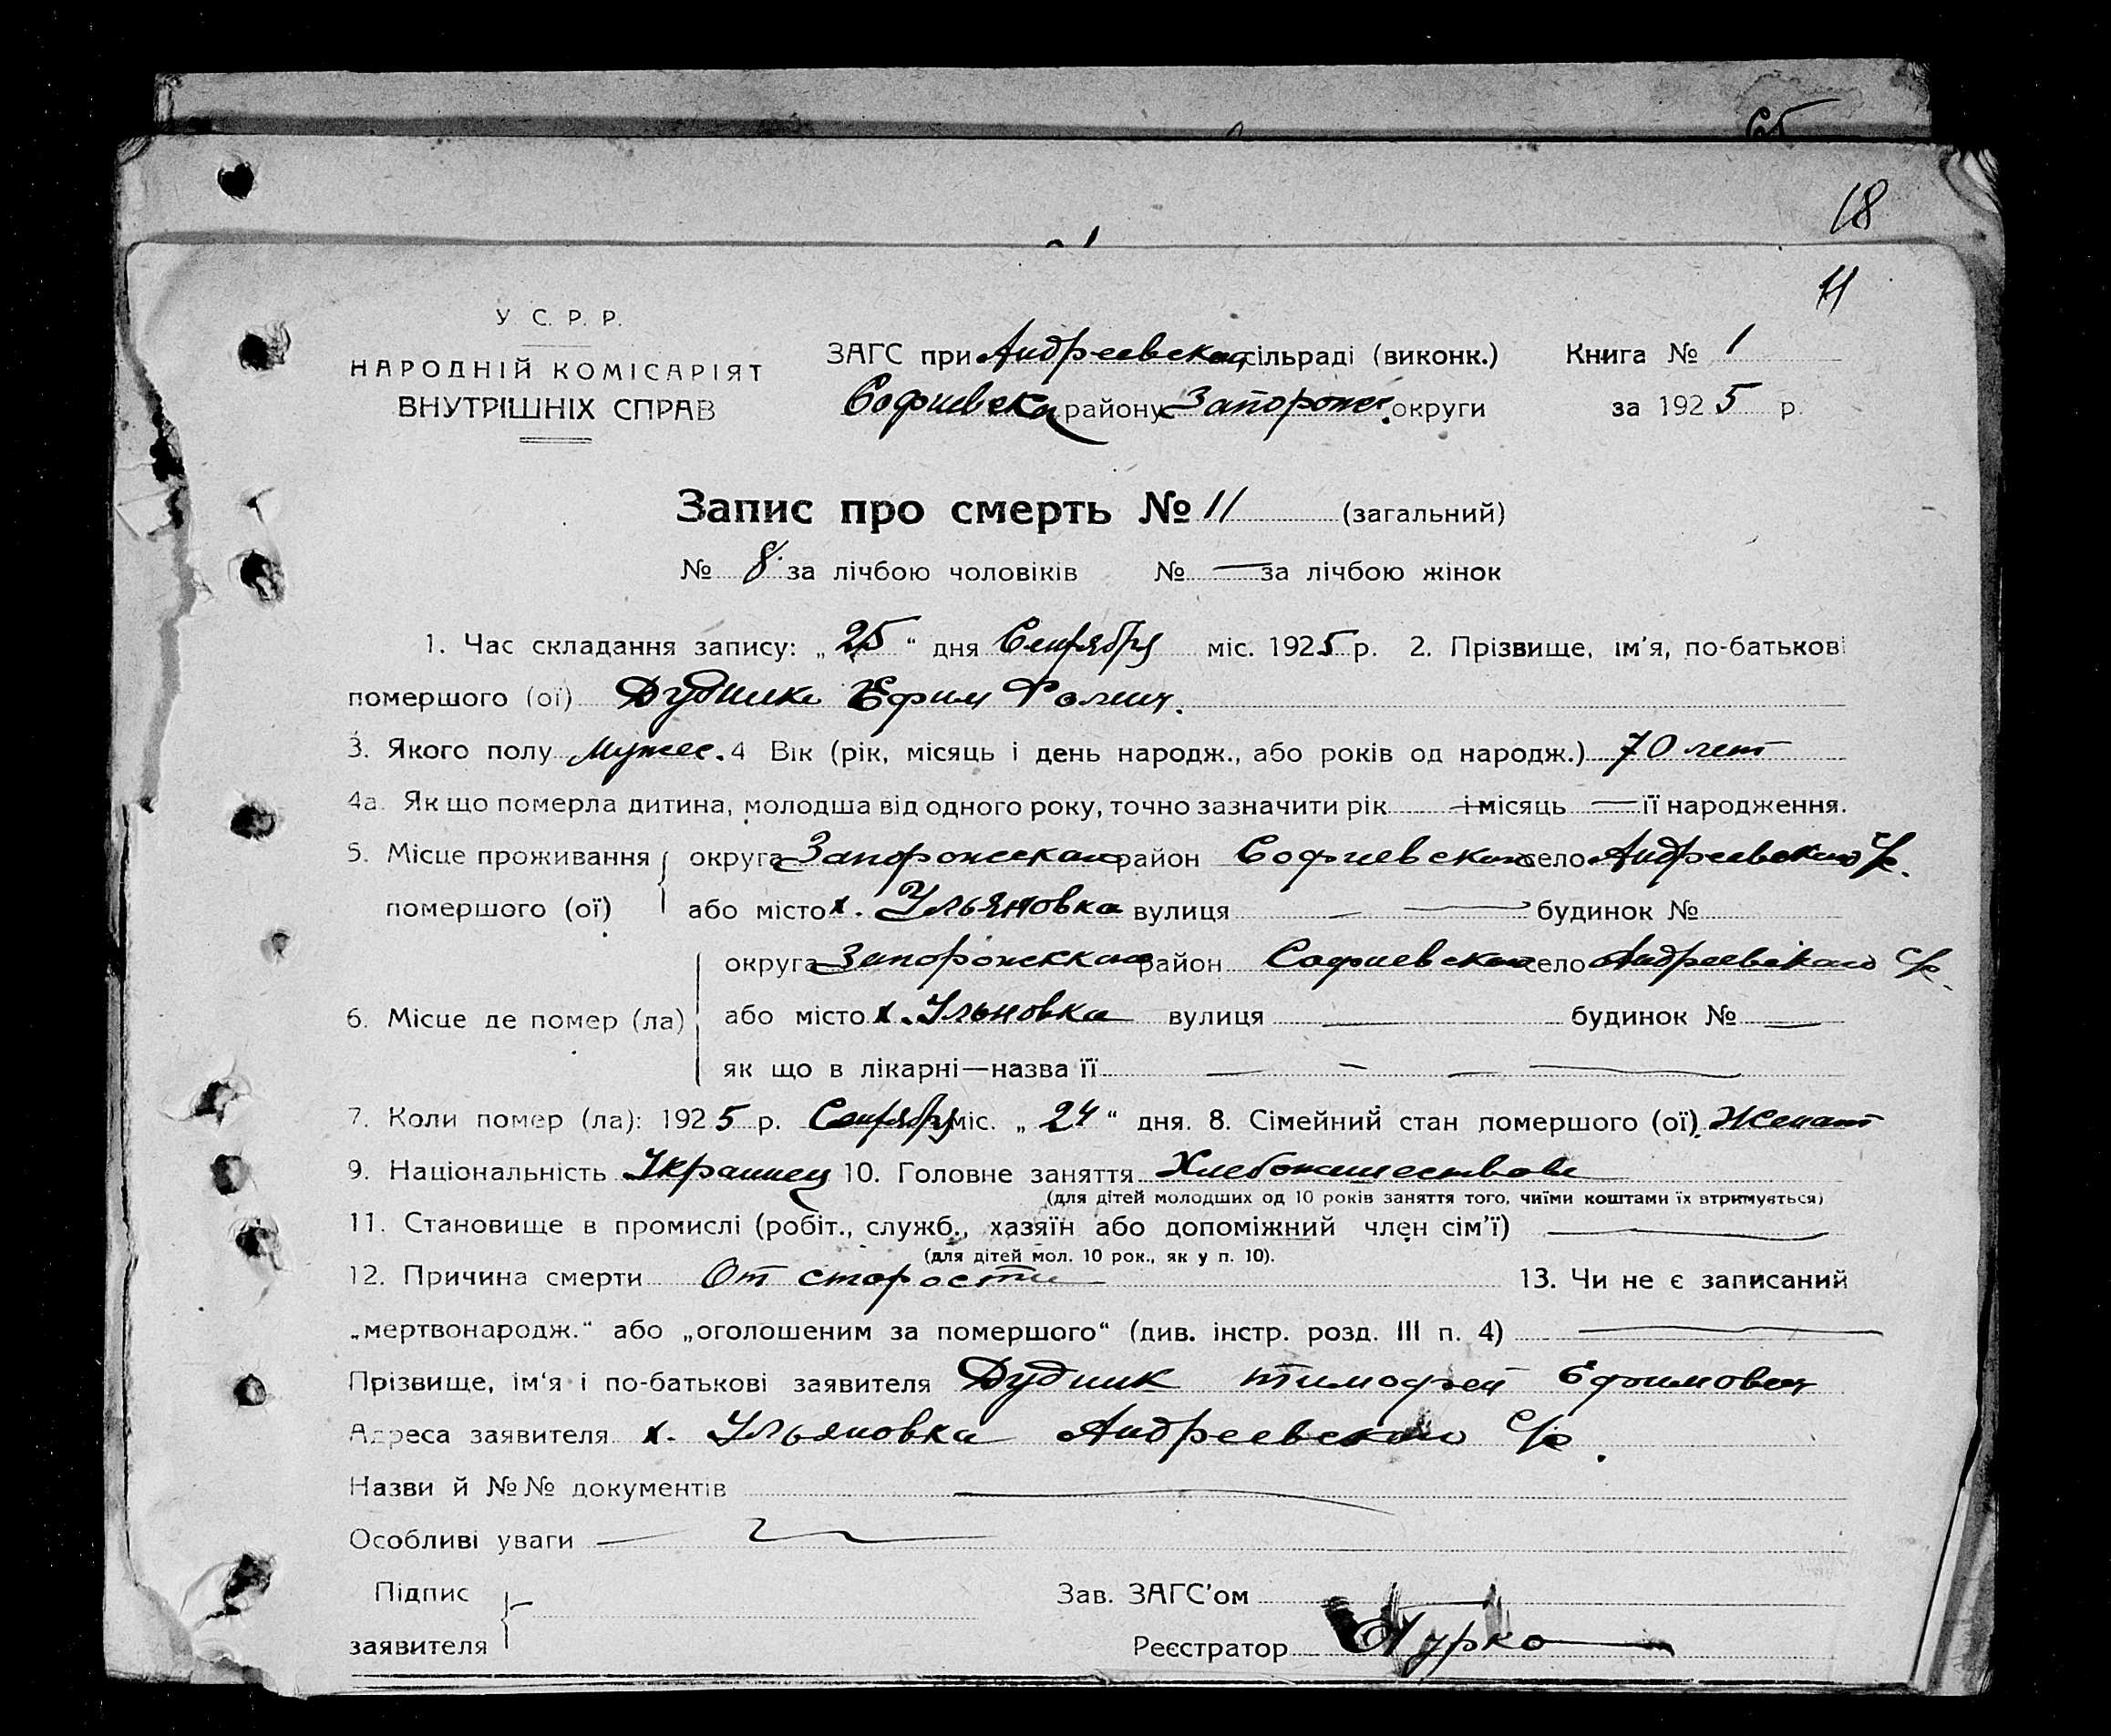 18
11
У. С. Р. Р.
НАРОДНІЙ КОМІСАРІЯТ
ВНУТРІШНІХ СПРАВ
ЗАГС при Андреевской сільраді (виконк.) Книга № 1
Софиевска району Запорож. округи за 1925 р.
Запис про смерть № 11 (загальний)
№ 8 за лічбою чоловіків № — за лічбою жінок
1. Час складання запису: „ 25 “ дня Сентября міс. 1925 р. 2. Прізвище, ім'я, по-батькові
помершого (ої) Дудник Ефим
3. Якого полу Мужес. 4 Вік (рік, місяць і день народж., або років од народж.) 70 лет
4а. Як що померла дитина, молодша від одного року, точно зазначити рік — і місяць — її народження.
5. Місце проживання округа Запорожская район Софиевского село Андреевского с/с.
помершого (ої) або місто х. Ульяновка вулиця — — будинок №
округа Запорожская район Софиевского село Андреевского с/с.
6. Місце де помер (ла) або місто х. Ульновка вулиця — будинок № —
як що в лікарні—назва її — — — —
7. Коли помер (ла): 1925 р. Сентября міс. „ 24 “ дня. 8. Сімейний стан помершого (ої). Женат
9. Національність Украинец 10. Головне заняття
(для дітей молодших од 10 років заняття того, чиїми коштами їх втримується)
11. Становище в промислі (робіт., служб., хазяїн або допоміжний член сім'ї) —
(для дітей мол. 10 рок., як у п. 10).
12. Причина смерти От старости 13. Чи не є записаний
„мертвонародж.“ або „оголошеним за помершого“ (див. інстр. розд. III п. 4) —
Прізвище, ім'я і по-батькові заявителя Дудник Тимофей Ефимович
Адреса заявителя х. Ульяновка Андреевского с/с.
Назви й №№ документів —
Особливі уваги —
Підпис Зав. ЗАГС'ом
заявителя Реєстратор Турко